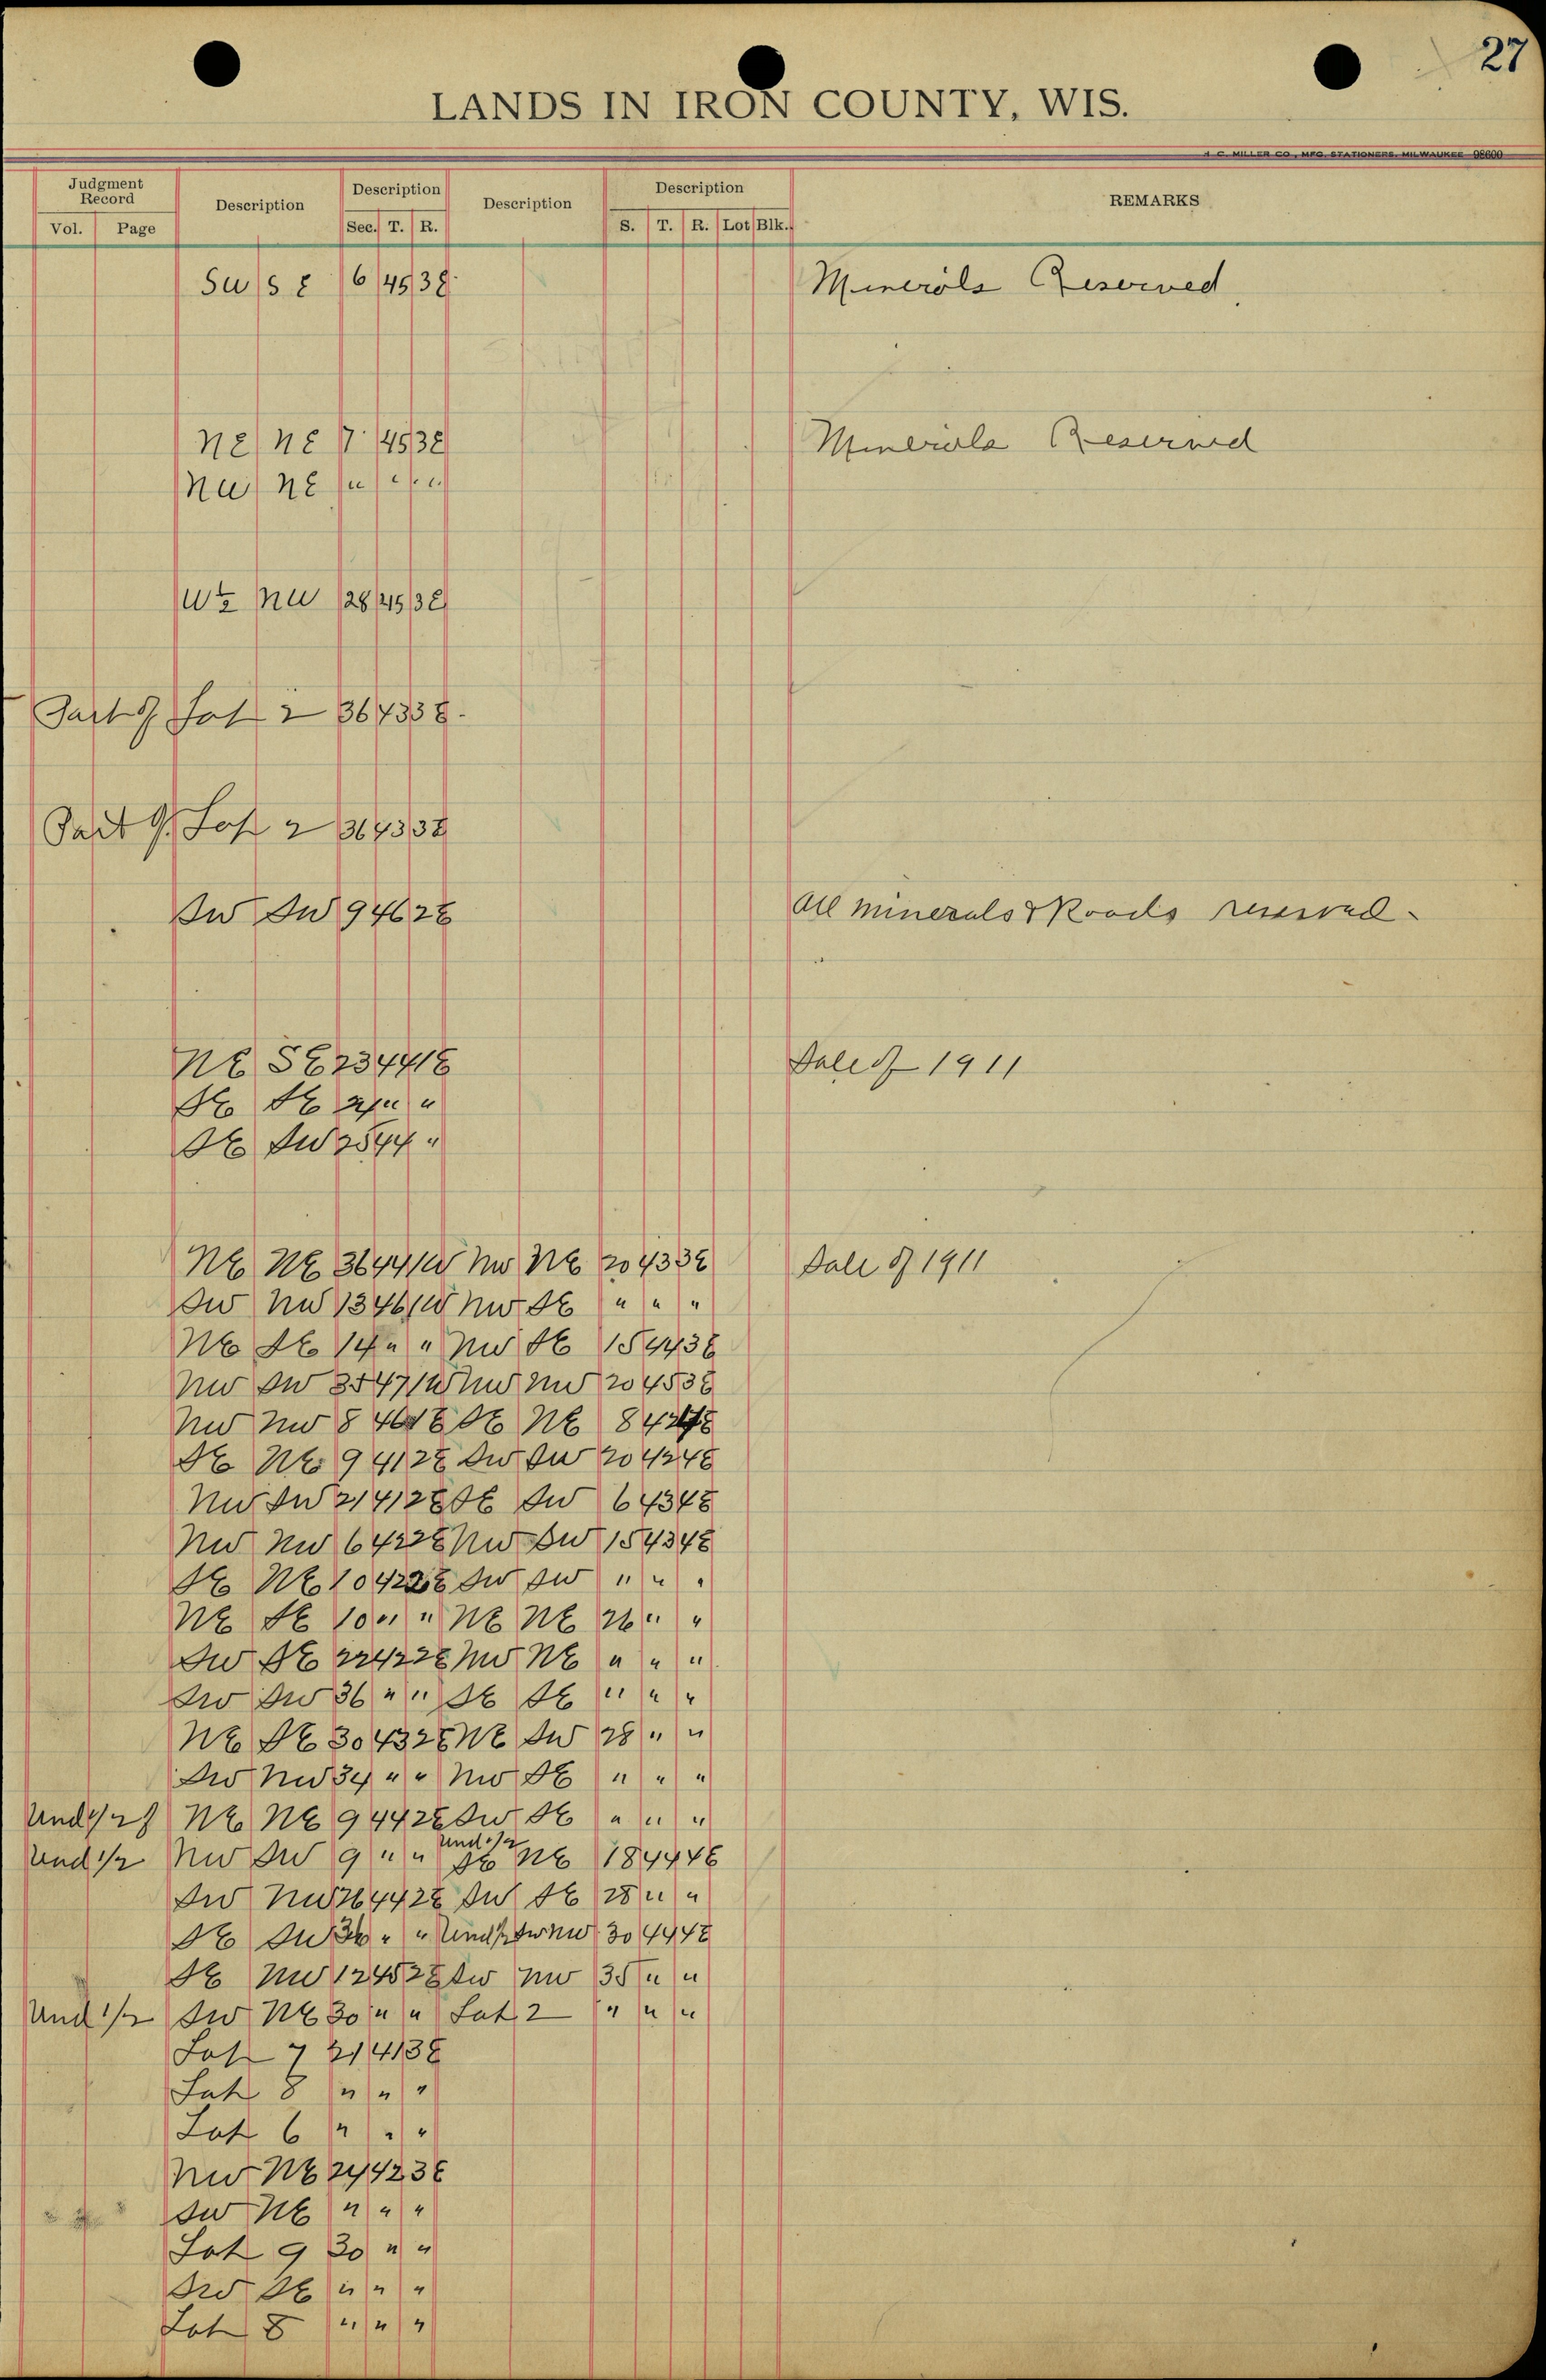 27
LANDS IN IRON COUNTY, WIS.
H. C. MILLER CO., MFG. STATIONERS, MILWAUKEE 98600
Judgment Record Description Description Description Description REMARKS
Vol. Page Sec. T. R. S. T. R. Lot Blk.
SW SE 6 45 3E Minerals Reserved
NE NE 7 45 3E Minerals Reserved
NW NE " " "
W½ NW 28 45 3E
Part of Lot 2 36 43 3E
Part of Lot 2 36 43 3E
SW SW 9 46 2E All minerals & Roads reserved
NE SE 23 44 1E Sale of 1911
SE SE " "
SE SW 25 44 "
NE NE 36 44 1W NW NE 20 43 3E Sale of 1911
SW NW 13 46 1W NW SE " " "
NE SE 14 " " NW SE 15 44 3E
NW SW 35 47 1W NW NW 20 45 3E
NW NW 8 46 1E SE NE 8 42 4E
SE NE 9 41 2E SW SW 20 42 4E
NW SW 21 41 2E SE SW 6 43 4E
NW NW 6 42 2E NW SW 15 43 4E
SE NE 10 42 2E SW SW " " "
NE SE 10 " " NE NE 26 " "
SW SE 22 42 2E NW NE " " "
SW SW 36 " " SE SE " " "
NE SE 30 43 2E NE SW 28 " "
SW NW 34 " " NW SE " " "
Und 1/2 of NE NE 9 44 2E SW SE " " "
Und 1/2 NW SW 9 " " Und 1/2 SE NE 18 44 4E
SW NW 26 44 2E SW SE 28 " "
SE SW 36 " " Und 1/2 SW NW 30 44 4E
SE NW 12 45 2E SW NW 35 " "
Und 1/2 SW NE 30 " " Lot 2 " " "
Lot 7 21 41 3E
Lot 8 " " "
Lot 6 " " "
NW NE 24 42 3E
SW NE " " "
Lot 9 30 " "
SW SE " " "
Lot 8 " " "